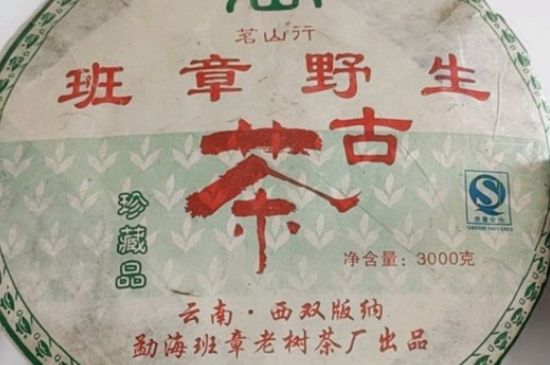 茗山行
班章野生
古
茶
珍藏品
质量安全
净含量：3000克
云南·西双版纳
勐海班章老树茶厂出品